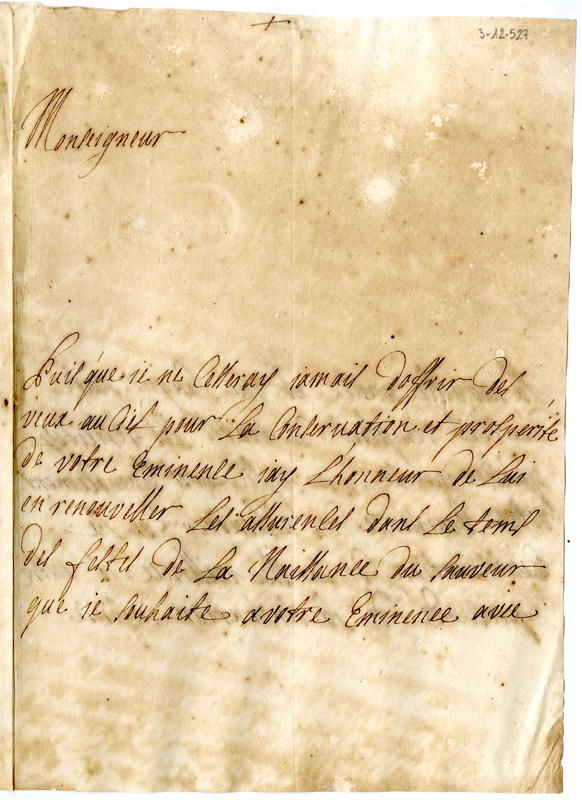 3-12-527
Monseigneur
Puisque ie ne Cesseray iamais d'offrir des
veux au Ciel pour La Conservation et prosperité
de votre Eminence iay Lhonneur de Lui
en renouveller Les assurences dans Le tems
des festes de La Naissance du Sauveur
que ie souhaite a votre Eminence avec